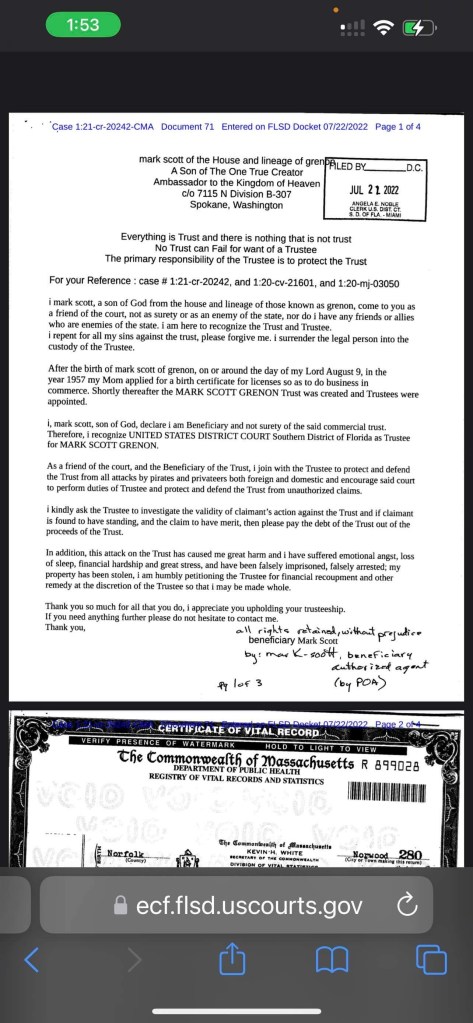 1:53
Case 1:21-cr-20242-CMA Document 71 Entered on FLSD Docket 07/22/2022 Page 1 of 4
mark scott of the House and lineage of grenon
A Son of The One True Creator
Ambassador to the Kingdom of Heaven
c/o 7115 N Division B-307
Spokane, Washington
FILED BY D.C.
JUL 21 2022
ANGELA E. NOBLE
CLERK U.S. DIST. CT.
S. D. OF FLA. - MIAMI
Everything is Trust and there is nothing that is not trust
No Trust can Fail for want of a Trustee
The primary responsibility of the Trustee is to protect the Trust
For your Reference : case # 1:21-cr-20242, and 1:20-cv-21601, and 1:20-mj-03050
i mark scott, a son of God from the house and lineage of those known as grenon, come to you as
a friend of the court, not as surety or as an enemy of the state, nor do i have any friends or allies
who are enemies of the state. i am here to recognize the Trust and Trustee.
i repent for all my sins against the trust, please forgive me. i surrender the legal person into the
custody of the Trustee.
After the birth of mark scott of grenon, on or around the day of my Lord August 9, in the
year 1957 my Mom applied for a birth certificate for licenses so as to do business in
commerce. Shortly thereafter the MARK SCOTT GRENON Trust was created and Trustees were
appointed.
i, mark scott, son of God, declare i am Beneficiary and not surety of the said commercial trust.
Therefore, i recognize UNITED STATES DISTRICT COURT Southern District of Florida as Trustee
for MARK SCOTT GRENON.
As a friend of the court, and the Beneficiary of the Trust, i join with the Trustee to protect and defend
the Trust from all attacks by pirates and privateers both foreign and domestic and encourage said court
to perform duties of Trustee and protect and defend the Trust from unauthorized claims.
i kindly ask the Trustee to investigate the validity of claimant's action against the Trust and if claimant
is found to have standing, and the claim to have merit, then please pay the debt of the Trust out of the
proceeds of the Trust.
In addition, this attack on the Trust has caused me great harm and i have suffered emotional angst, loss
of sleep, financial hardship and great stress, and have been falsely imprisoned, falsely arrested; my
property has been stolen, i am humbly petitioning the Trustee for financial recoupment and other
remedy at the discretion of the Trustee so that i may be made whole.
Thank you so much for all that you do, i appreciate you upholding your trusteeship.
If you need anything further please do not hesitate to contact me.
Thank you,
all rights retained, without prejudice
beneficiary Mark Scott
by: mark-scott, beneficiary
authorized agent
pg 1 of 3 (by POA)
07/22/2022 Page 2 of 4
CERTIFICATE OF VITAL RECORD
VERIFY PRESENCE OF WATERMARK HOLD TO LIGHT TO VIEW
The Commonwealth of Massachusetts R 899028
DEPARTMENT OF PUBLIC HEALTH
REGISTRY OF VITAL RECORDS AND STATISTICS
The Commonwealth of Massachusetts
KEVIN H. WHITE
SECRETARY OF THE COMMONWEALTH
DIVISION OF VITAL STATISTICS
Norfolk
(County)
Norwood 280
(City or Town making this return)
ecf.flsd.uscourts.gov